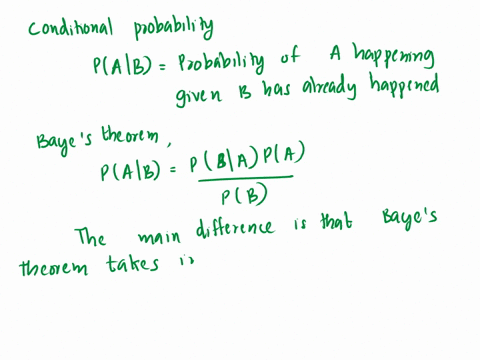 Conditional probability
P(A|B) = Probability of A happening
given B has already happened
Baye's theorem,
P(A|B) = P(B|A)P(A) / P(B)
The main difference is that Baye's
theorem takes i